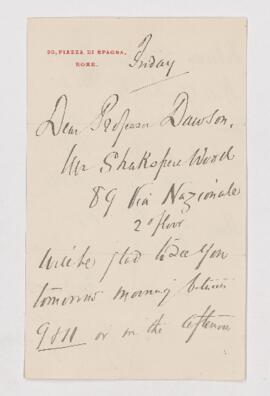 20, PIAZZA DI SPAGNA,
ROME.
Friday
Dear Professor Dawson,
Mr Shakspere Wood
89 Via Nazionale
2o floor
Will be glad to see you
tomorrow morning between
9 & 11 or in the afternoon